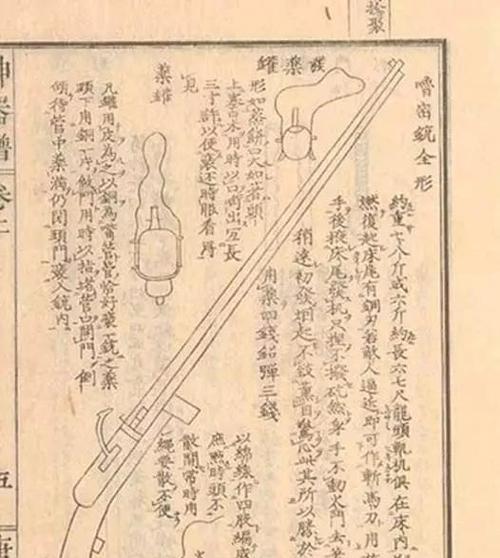 拴聚
嚕密銃全形
約重七八斤或六斤約長六七尺龍頭軌机俱在床內
燃復起床尾有鋼刃若敵人逼近即可作斬馬刀用
手後撥床尾發机只捏不撥砒然身手不動火門去
稍遠初發烟起不致薰目驚心此其所以勝於
用藥四錢鉛彈三錢
藥罐
形如蒸餅口大如箸頭
上塞以木用時以口嚙出
三寸許以便裝送時眼看得
見
藥罐
凡罐用皮為之以銅為管管恰好裝一銃之藥
項下用銅一片做門用時以指堵管口開門倒
傾待管中藥滿仍閉頭門裝入銃內
以綿線作四股編成
散開常時用
繩要散不便
神器譜 卷之二
五